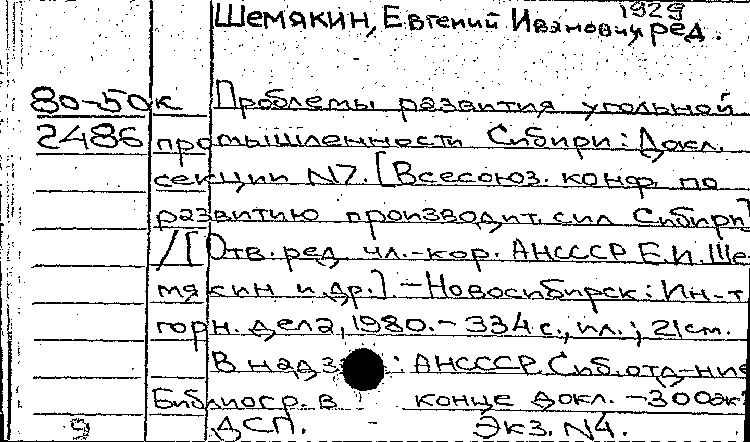 1929
Шемякин, Евгений Иванович, ред.
80-50к Проблемы развития угольной
2486 промышленности Сибири: Докл.
секции N7. [Всесоюз. конф. по
развитию производит. сил Сибири]
/[Отв. ред. чл.-кор. АНСССР Е.И. Ше-
мякин и др.].-Новосибирск: Ин-т
горн. дела, 1980.- 334 с., ил.; 21 см.
В надз : АНСССР. Сиб. отд-ние
Библиогр. в конце докл. -300эк
9 ДСП. Экз. N4.